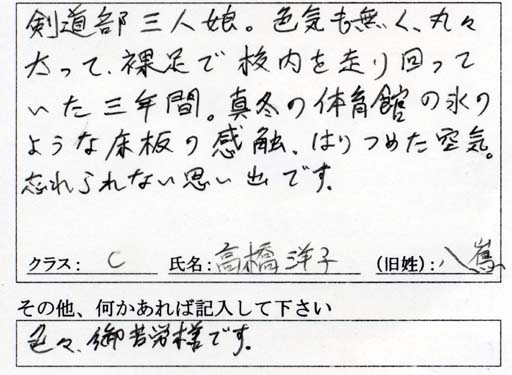 剣道部三人娘。色気も無く、丸々
太って、裸足で校内を走り回って
いた三年間。真冬の体育館の氷の
ような床板の感触、はりつめた空気。
忘れられない思い出です。
クラス: C 氏名:高橋洋子 (旧姓):八嶌
その他、何かあれば記入して下さい
色々、御苦労様です。